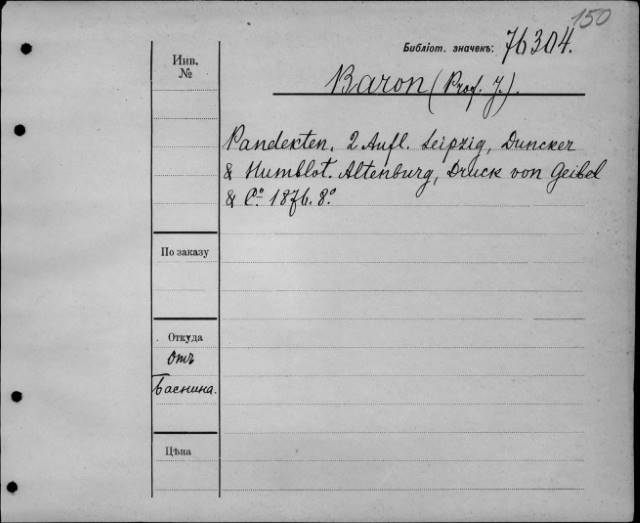 150
Библіот. значекъ: 76304.
Инв.
№
Baron (Prof. J.).
Pandekten. 2 Aufl. Leipzig, Duncker
& Humblot. Altenburg, Druck von Geibel
& Cº. 1876. 8º.
По заказу
Откуда
Отъ
Баснина.
Цѣна